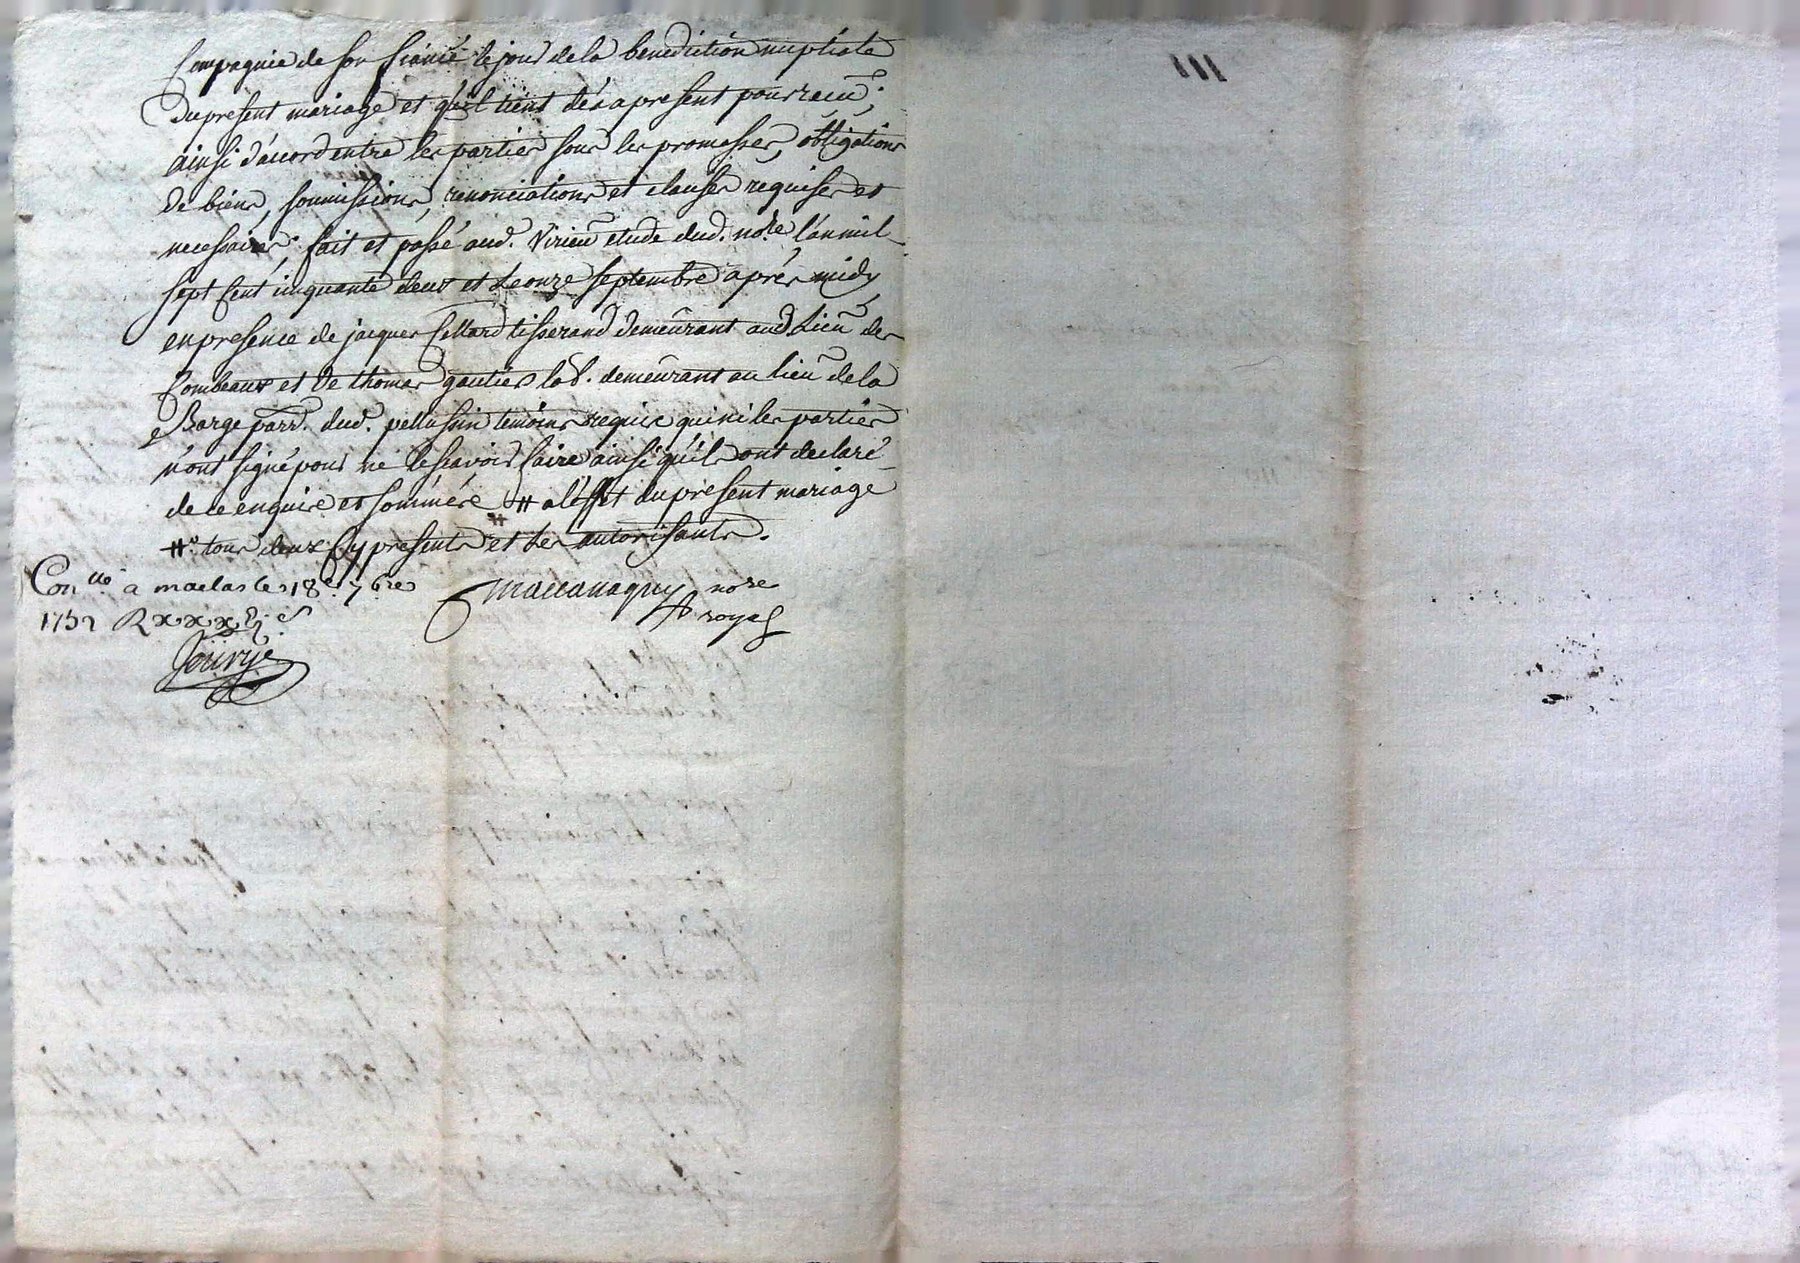 Compagnie de son fiancé le jour de la benediction nuptiale
du present mariage et qu'il tient dés a present pour receu;
ainsi d'accord entre les parties sous les promesses, obligations
de biens, soumissions, renonciations et clauses requises et
necessaires; fait et passé aud. Virieu etude dud. nore. l'an mil
sept cent cinquante deux et le onze septembre aprés midy
en presence de jacques Cellard tisserand demeurant aud. lieu des
Combeaux et de thomas gautier lab. demeurant au lieu de la
Barge parr. dud. pellussin temoins requis qui ni les parties
n'ont signé pour ne le sçavoir faire ainsi qu'ils ont declaré
de ce enquis et sommés # a l'effet du present mariage
#° tous deux cy presents et les autorisants.
Con.lle a maclas le 18e. 7bre
1752 R xxx
nore
royal
Jouvye